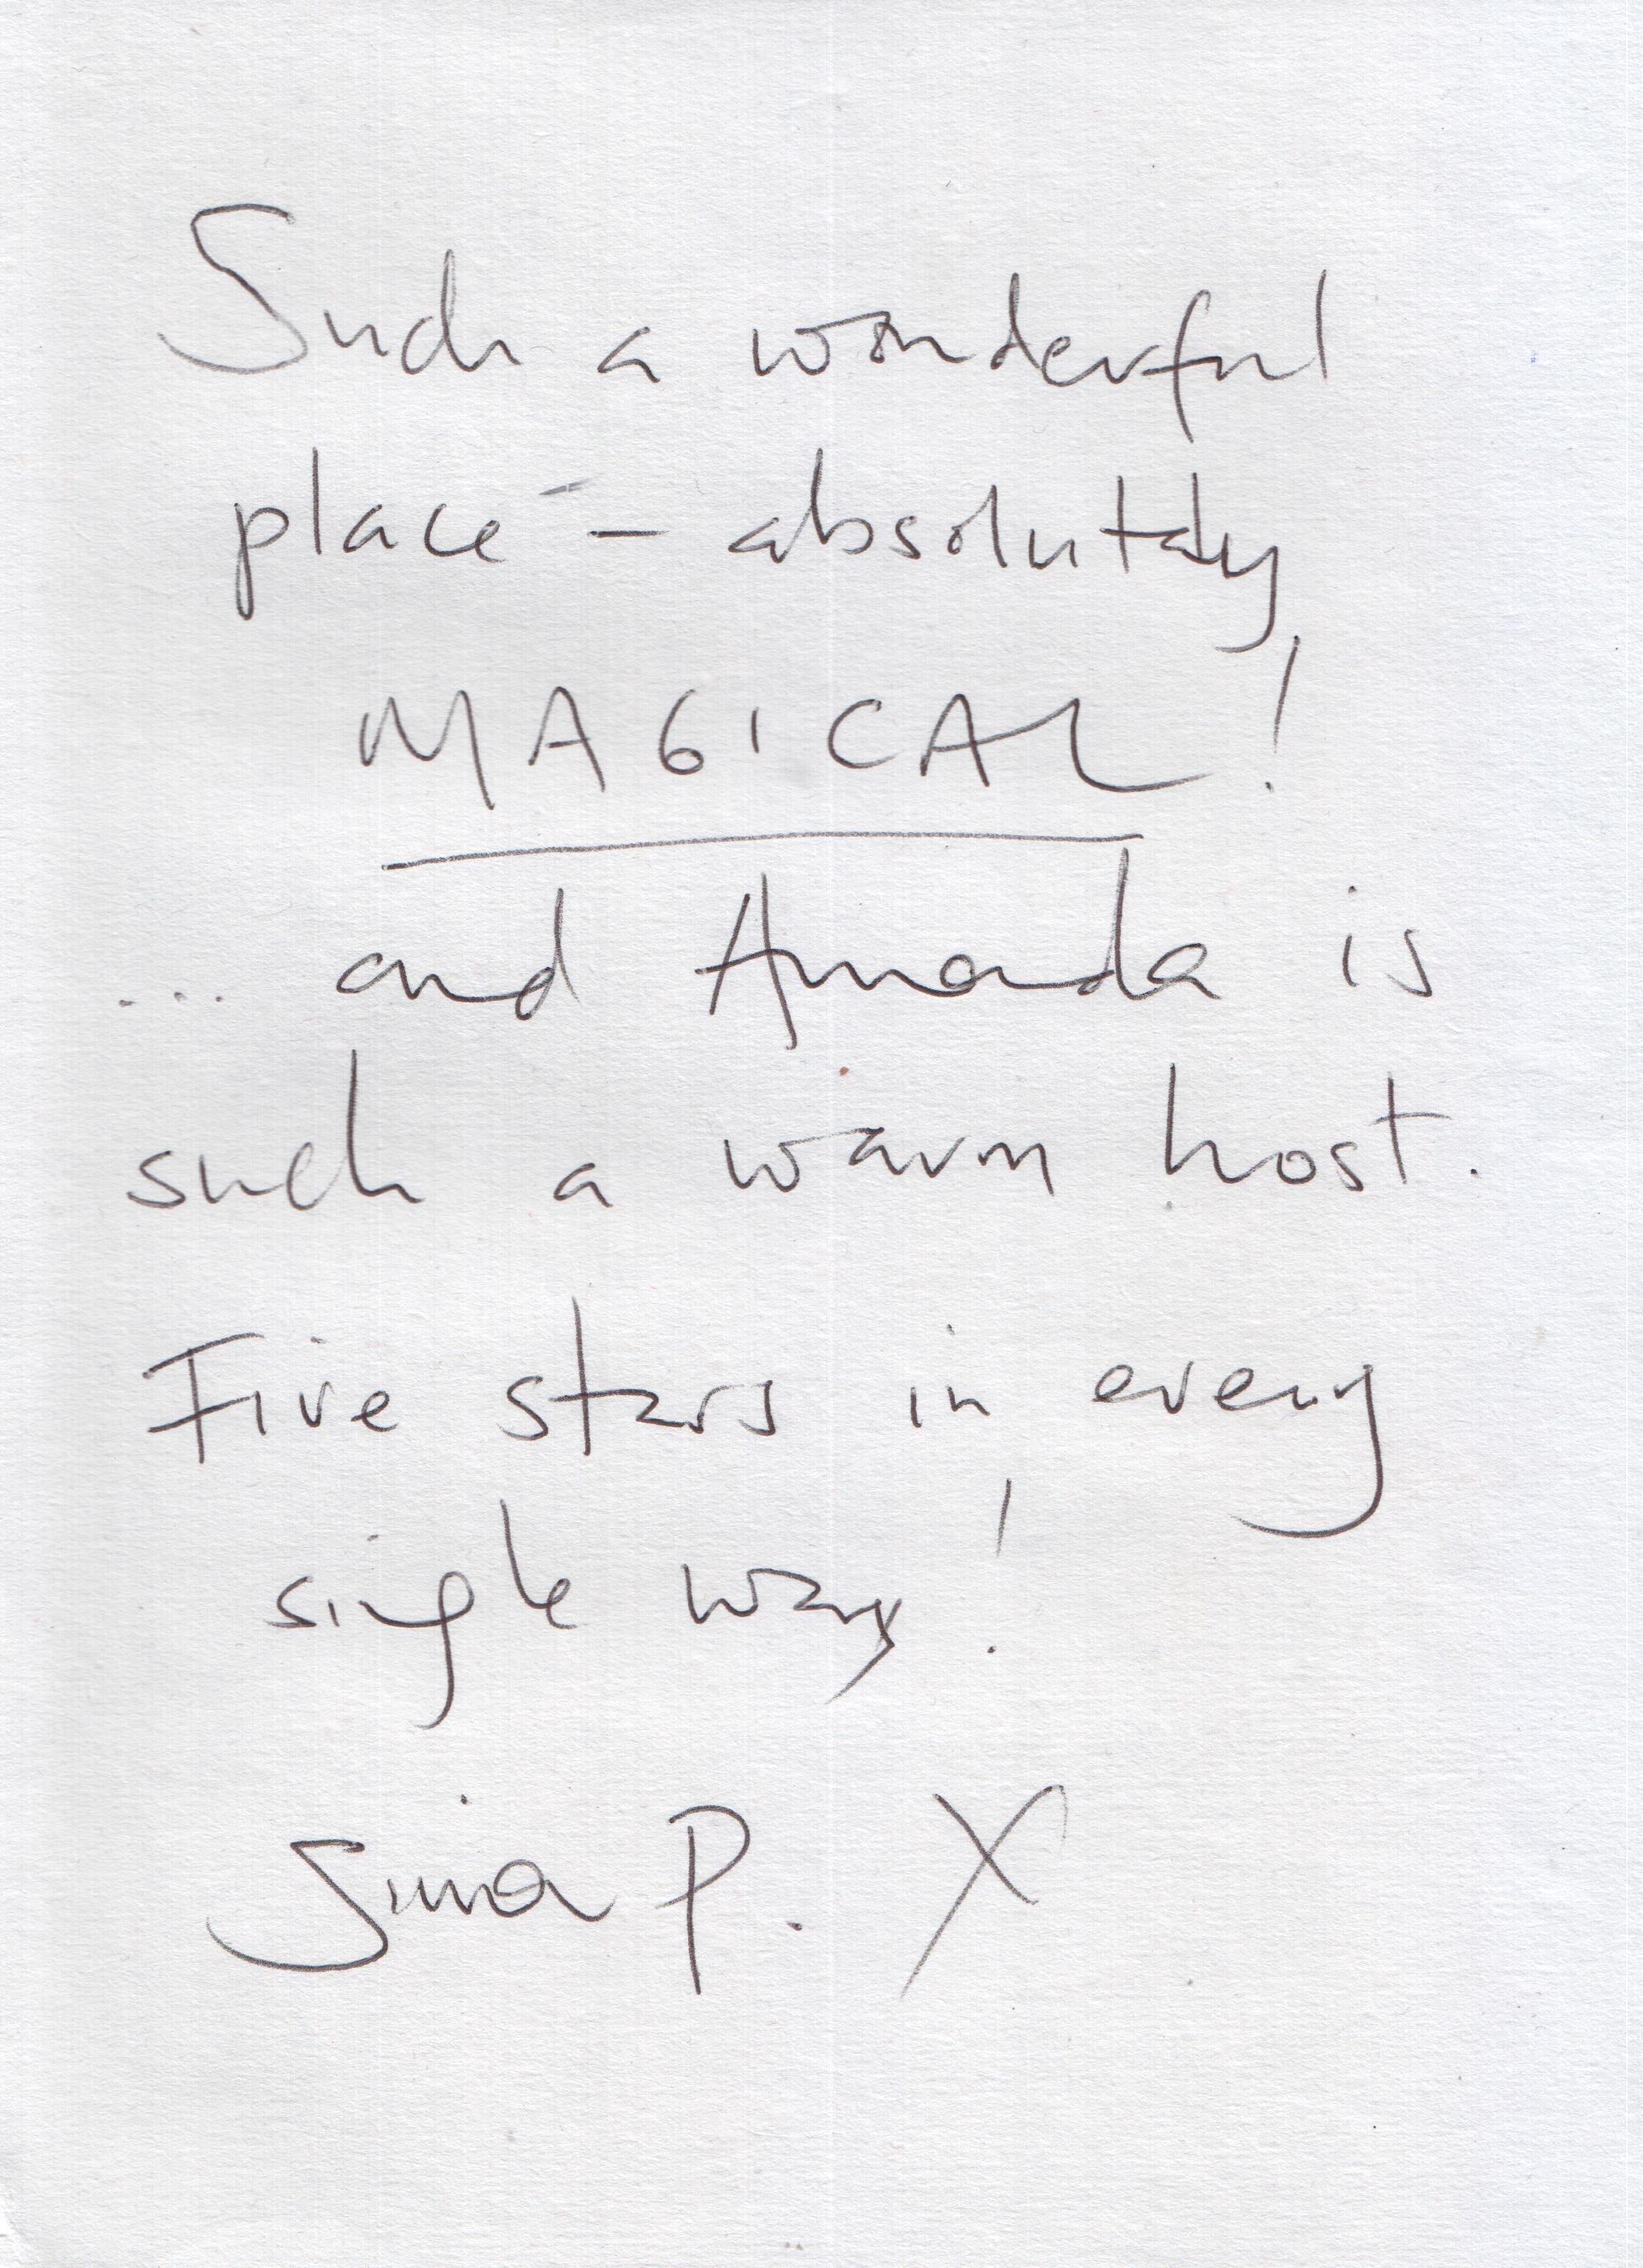 Such a wonderful
place - absolutely
MAGICAL!
... and Amanda is
such a warm host.
Five stars in every
single way!
P. X